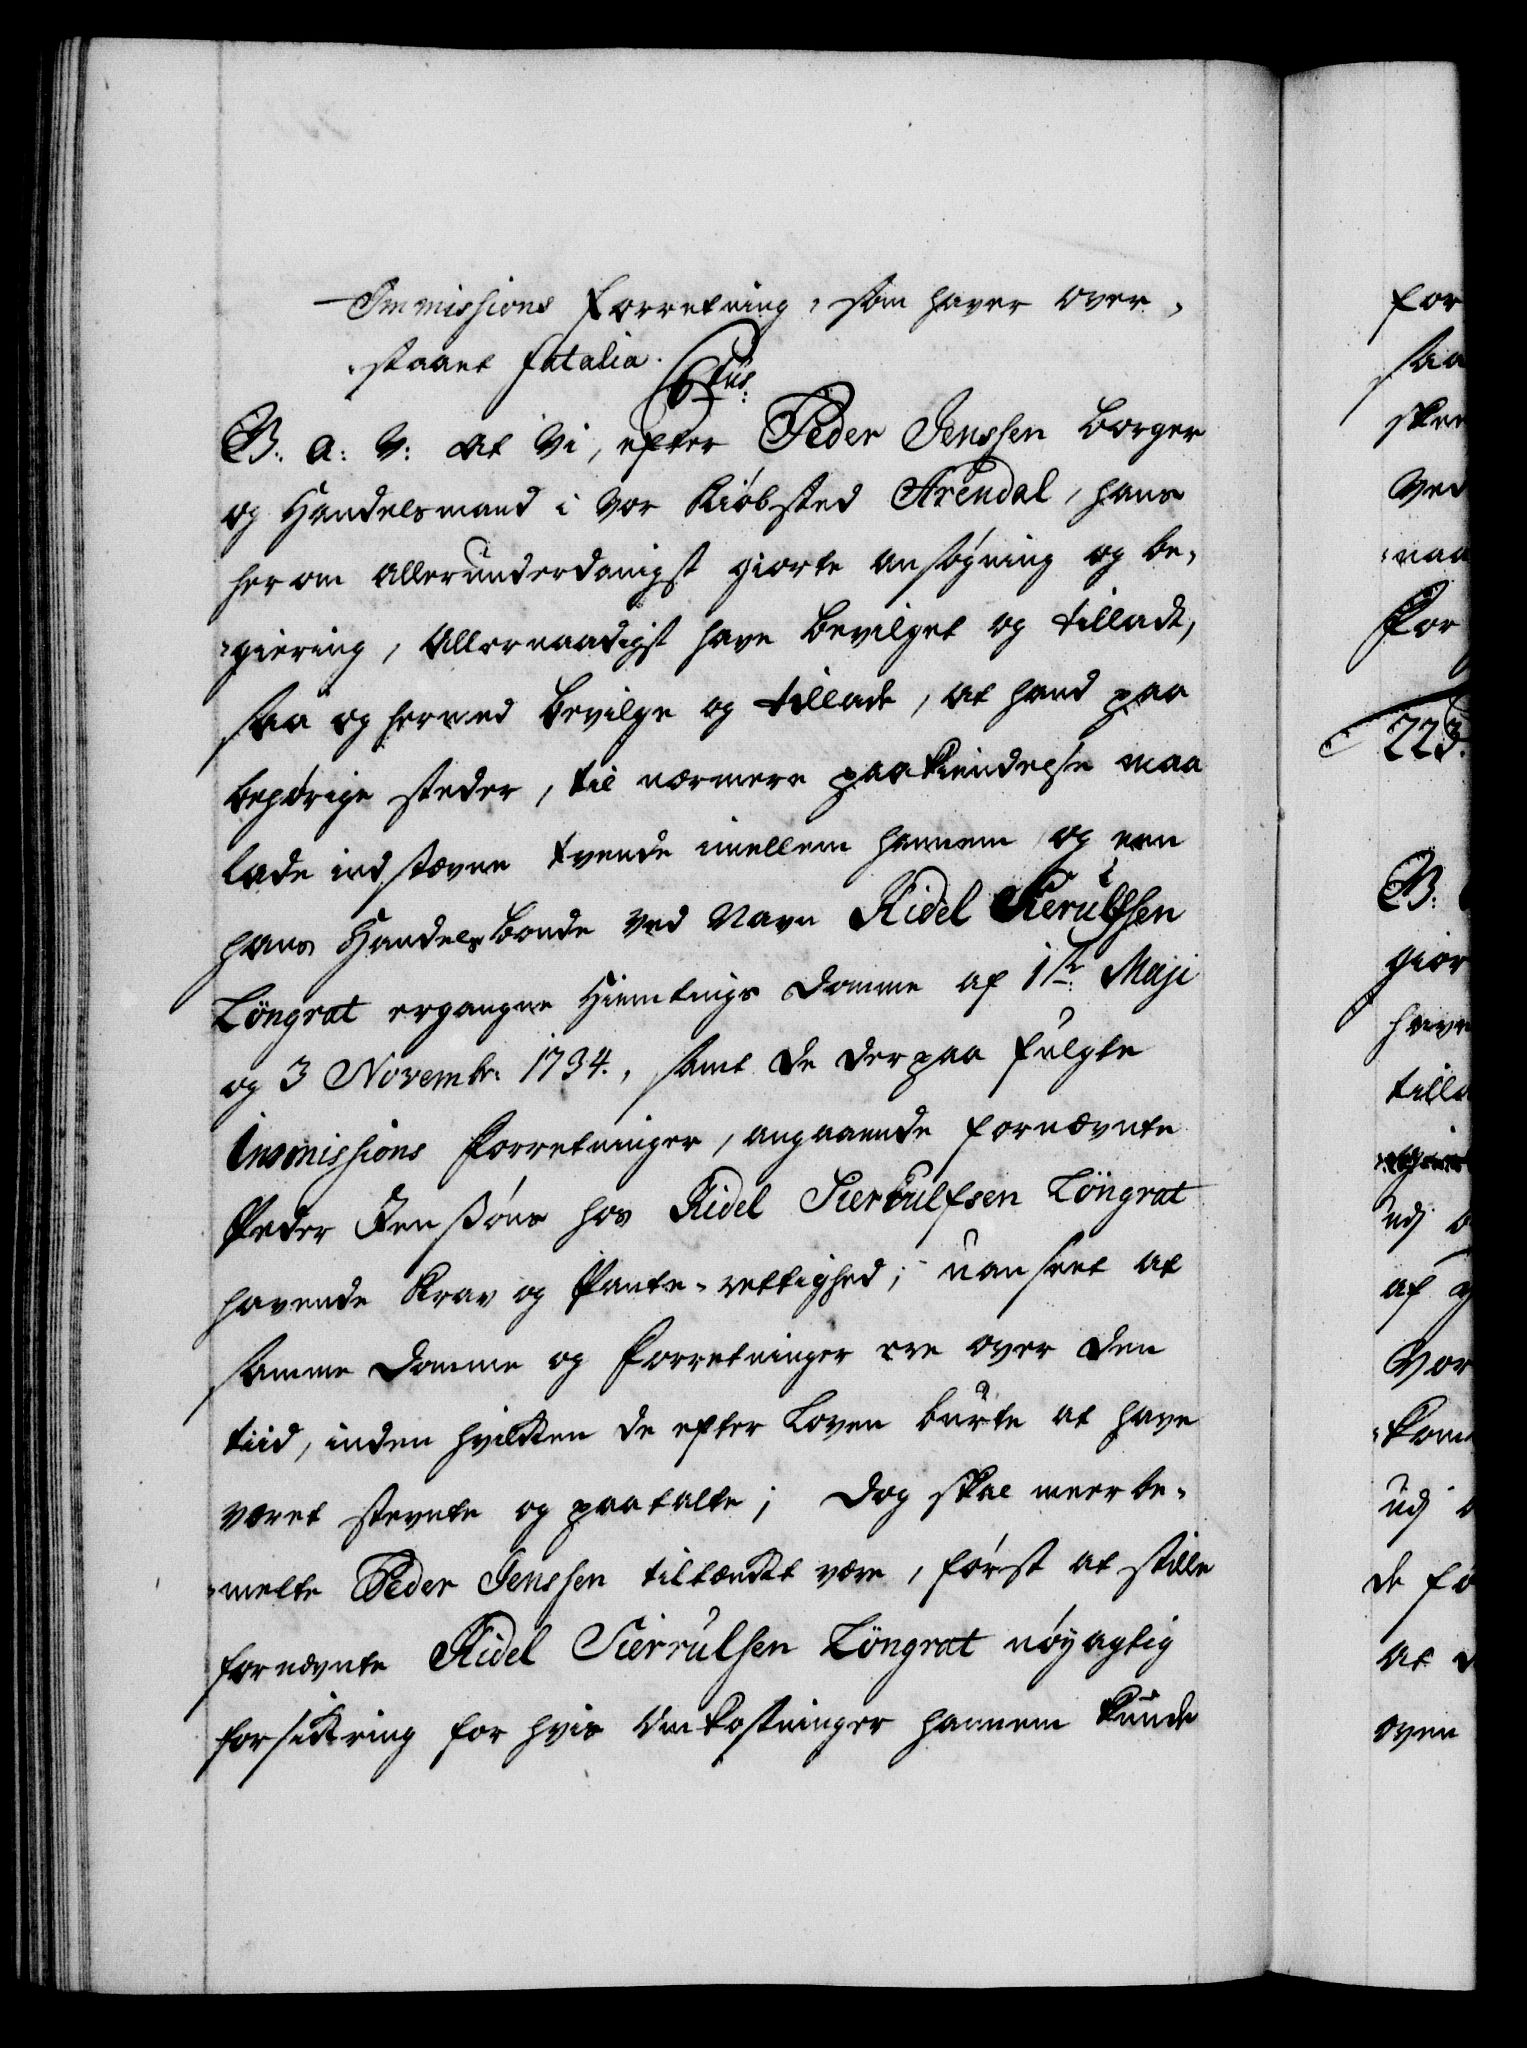 Immissions Forretning, som haver over-
staaet fatalia.
C6tus:
G. A. V: at Vi, efter Peder Jenssen Borger
og Handelsmand i Vor Kiöbsted Arendal, hans
herom allerunderdanigst giorte ansögning og be-
giering, Allernaadigst have bevilget og tilladt,
saa og hermed bevilge og tillade, at hand paa
behörige steder, til nærmere paakiendelse maa
lade indstævne tvende imellem hannem og een
hans Handels Bonde ved Navn Kidel Sierulfsen
Löngrat ergangne Hiemtings Domme af 1ste Maji
og 3 Novembr: 1734., samt de derpaa fulgte
Immissions Forretninger, angaaende fornævnte
Peder Jenssöns hos Kidel Sierulfsen Löngrat
havende Krav og Pante-rettighed; uanseet at
samme Domme og Forretninger ere over den
tiid, inden hvilken de efter Loven burte at have
været stevnte og paatalte; Dog skal meerbe-
melte Peder Jenssen tiltænkt være, först at stille
fornævnte Kidel Sierrulsen Löngrat nöyagtig
forsikring for hvis Omkostninger hannem kunde
For
saa
skee
Ved
naa
For
223.
G:
gior
have
tilla
udj
af
Vor
kom
udj
de fö
at
oven